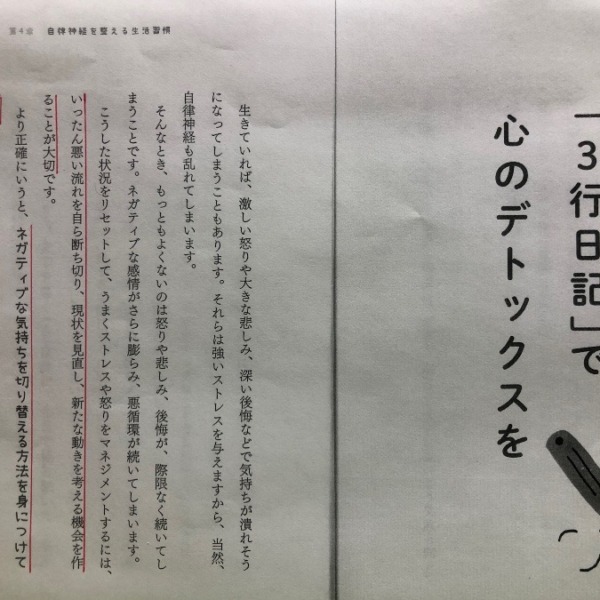 「3行日記」で
心のデトックスを
第4章 自律神経を整える生活習慣
生きていれば、激しい怒りや大きな悲しみ、深い後悔などで気持ちが潰れそう
になってしまうこともあります。それらは強いストレスを与えますから、当然、
自律神経も乱れてしまいます。
そんなとき、もっともよくないのは怒りや悲しみ、後悔が、際限なく続いてし
まうことです。ネガティブな感情がさらに膨らみ、悪循環が続いてしまいます。
こうした状況をリセットして、うまくストレスや怒りをマネジメントするには、
いったん悪い流れを自ら断ち切り、現状を見直し、新たな動きを考える機会を作
ることが大切です。
より正確にいうと、ネガティブな気持ちを切り替える方法を身につけて